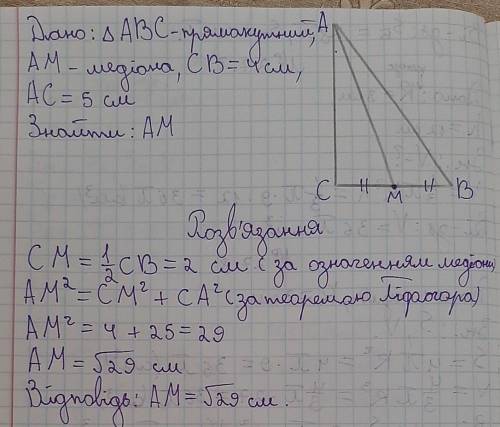 Дано: △ ABC - прямокутний,
AM - медіона, CB = 4 см,
AC = 5 см
Знайти: AM
A
C
M
B
Розв'язання
CM = 1/2 CB = 2 см (за означенням медіони)
AM² = CM² + CA² (за теаремаю Піфагора)
AM² = 4 + 25 = 29
AM = √29 см
Відповідь: AM = √29 см.